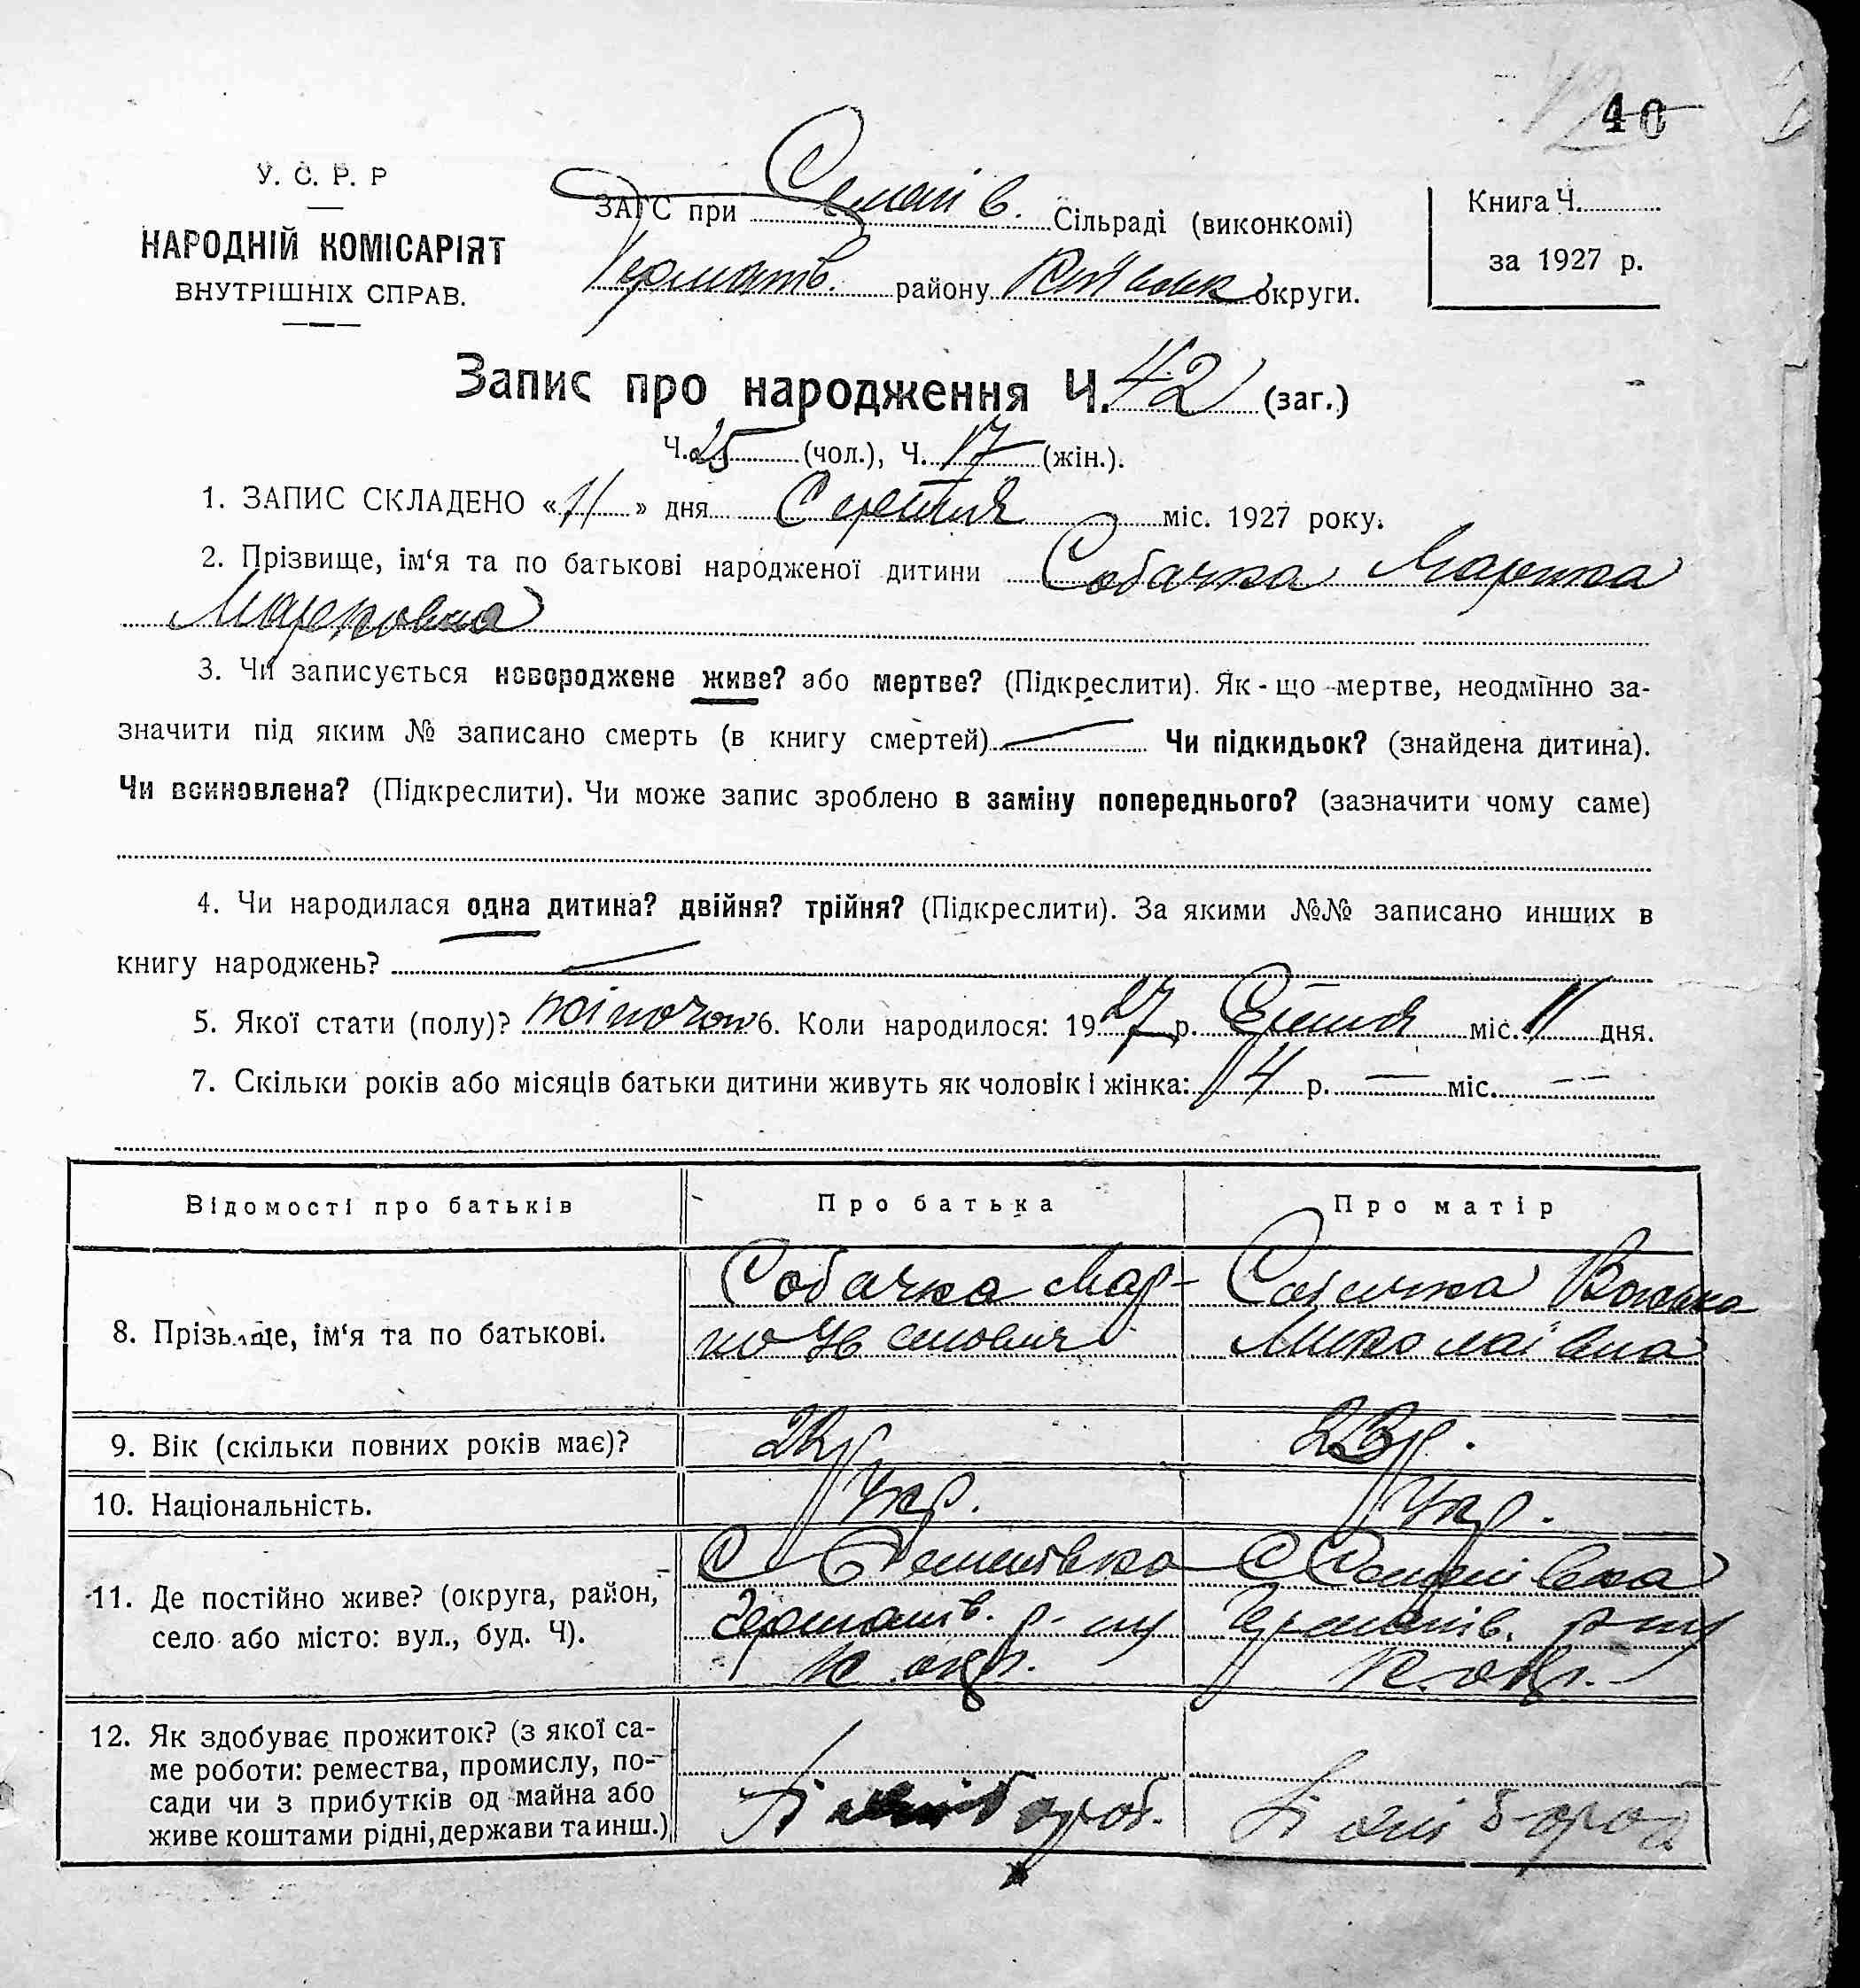 40
У. С. Р. Р
НАРОДНІЙ КОМІСАРІЯТ
ВНУТРІШНІХ СПРАВ.
ЗАГС при Семенів. Сільраді (виконкомі)
Германів. району Київськ округи.
Книга Ч.
за 1927 р.
Запис про народження Ч. 42 (заг.)
Ч. 25 (чол.), Ч. 17 (жін.).
1. ЗАПИС СКЛАДЕНО « 11 » дня Серпня міс. 1927 року.
2. Прізвище, ім‘я та по батькові народженої дитини Собачка Марика
Марковна
3. Чи записується новороджене живе? або мертве? (Підкреслити). Як - що мертве, неодмінно за-
значити під яким № записано смерть (в книгу смертей) Чи підкидьок? (знайдена дитина).
Чи всиновлена? (Підкреслити). Чи може запис зроблено в заміну попереднього? (зазначити чому саме)
4. Чи народилася одна дитина? двійня? трійня? (Підкреслити). За якими №№ записано инших в
книгу народжень?
5. Якої стати (полу)? жіночої 6. Коли народилося: 1927 р. Серпня міс. 11 дня.
7. Скільки років або місяців батьки дитини живуть як чоловік і жінка: 4 р. — міс. —
Відомості про батьків
Про батька
Про матір
8. Прізвище, ім‘я та по батькові.
Собачка Мар-
ко
Собачка
Миколаївна
9. Вік (скільки повних років має)?
23 р.
10. Національність.
Укр.
Укр.
11. Де постійно живе? (округа, район,
село або місто: вул., буд. Ч).
С Семенівка
Германів. р-ну
К. окр.
С Семенівка
Германів. р-ну
К. окр.
12. Як здобуває прожиток? (з якої са-
ме роботи: ремества, промислу, по-
сади чи з прибутків од майна або
живе коштами рідні, держави та инш.)
хлібороб.
хлібороб